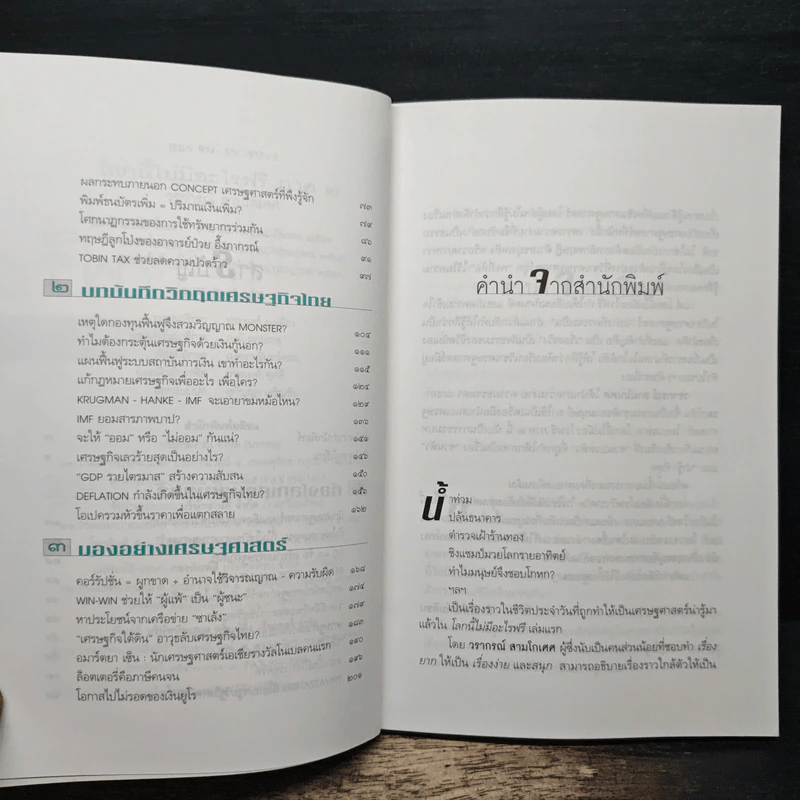 ผลกระทบภายนอก CONCEPT เศรษฐศาสตร์ที่พึงรู้จัก ๗๓
พิมพ์ธนบัตรเพิ่ม = ปริมาณเงินเพิ่ม? ๗๙
โศกนาฏกรรมของการใช้ทรัพยากรร่วมกัน ๘๖
ทฤษฎีลูกโป่งของอาจารย์ป๋วย อึ๊งภากรณ์ ๙๑
TOBIN TAX ช่วยลดความปวดร้าว ๙๗
๒ บทบันทึกวิกฤตเศรษฐกิจไทย
เหตุใดกองทุนฟื้นฟูจึงสวมวิญญาณ MONSTER? ๑๐๔
ทำไมต้องกระตุ้นเศรษฐกิจด้วยเงินกู้นอก? ๑๑๑
แผนฟื้นฟูระบบสถาบันการเงิน เขาทำอะไรกัน? ๑๑๕
แก้กฎหมายเศรษฐกิจเพื่ออะไร เพื่อใคร? ๑๒๔
KRUGMAN - HANKE - IMF จะเอายาขมหม้อไหน? ๑๒๙
IMF ยอมสารภาพบาป? ๑๓๖
จะให้ "ออม" หรือ "ไม่ออม" กันแน่? ๑๔๑
เศรษฐกิจเลวร้ายสุดเป็นอย่างไร? ๑๔๖
"GDP รายไตรมาส" สร้างความสับสน ๑๕๐
DEFLATION กำลังเกิดขึ้นในเศรษฐกิจไทย? ๑๕๖
โอเปครวมหัวขึ้นราคาเพื่อแตกสลาย ๑๖๒
๓ มองอย่างเศรษฐศาสตร์
คอร์รัปชั่น = ผูกขาด + อำนาจใช้วิจารณญาณ - ความรับผิด ๑๖๘
WIN-WIN ช่วยให้ "ผู้แพ้" เป็น "ผู้ชนะ" ๑๗๔
หาประโยชน์จากเครือข่าย "ซาเล้ง" ๑๗๙
"เศรษฐกิจใต้ดิน" อาวุธลับเศรษฐกิจไทย? ๑๘๓
อมาร์ตยา เซ็น : นักเศรษฐศาสตร์เอเชียรางวัลโนเบลคนแรก ๑๙๐
ล็อตเตอรี่คือภาษีคนจน ๑๙๖
โอกาสไปไม่รอดของเงินยูโร ๒๐๑
คำนำ จากสำนักพิมพ์
น้ำท่วม
ปล้นธนาคาร
ตำรวจเฝ้าร้านทอง
ชิงแชมป์มวยโลกรายอาทิตย์
ทำไมมนุษย์จึงชอบโกหก?
ฯลฯ
เป็นเรื่องราวในชีวิตประจำวันที่ถูกทำให้เป็นเศรษฐศาสตร์น่ารู้มา
แล้วใน โลกนี้ไม่มีอะไรฟรี เล่มแรก
โดย วรากรณ์ สามโกเศศ ผู้ซึ่งนับเป็นคนส่วนน้อยที่ชอบทำ เรื่อง
ยาก ให้เป็น เรื่องง่าย และสนุก สามารถอธิบายเรื่องราวใกล้ตัวให้เป็น